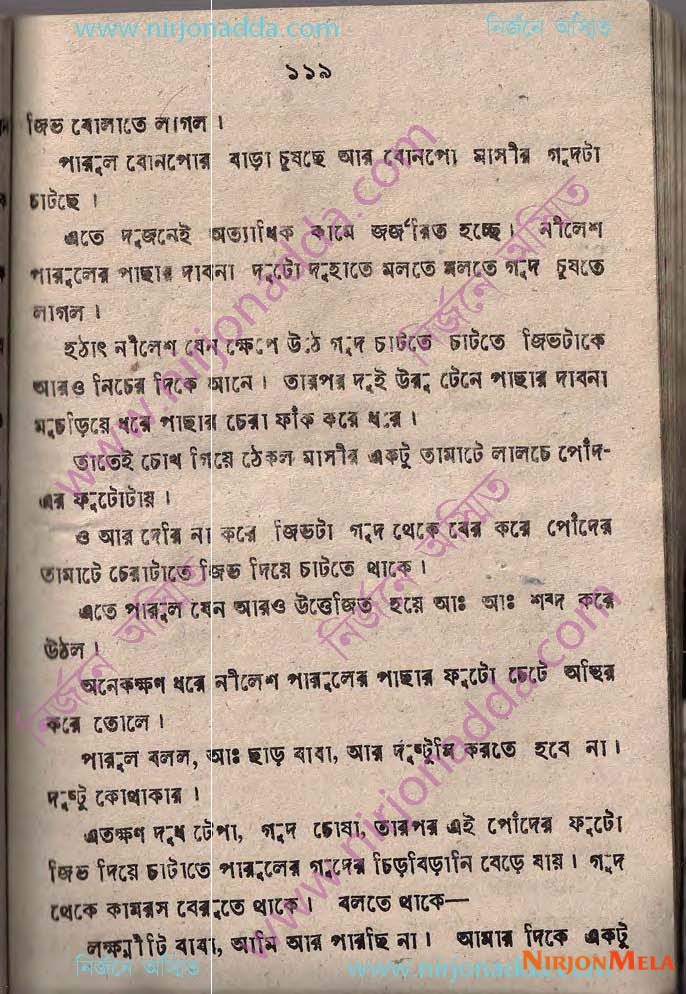 www.nirjonadda.com নির্জনে অস্মিত
১১৯
জিভ বোলাতে লাগল।
পারুল বোনপোর বাড়া চুষছে আর বোনপো মাসীর গুদটা
চাটছে।
এতে দুজনেই অত্যাধিক কামে জর্জরিত হচ্ছে। নীলেশ
পারুলের পাছার দাবনা দুটো দুহাতে মলতে মলতে গুদ চুষতে
লাগল।
হঠাৎ নীলেশ যেন ক্ষেপে উঠে গুদ চাটতে চাটতে জিভটাকে
আরও নিচের দিকে আনে। তারপর দুই উরু টেনে পাছার দাবনা
মুচড়িয়ে ধরে পাছার চেরা ফাঁক করে ধরে।
তাতেই চোখ গিয়ে ঠেকল মাসীর একটু তামাটে লালচে পোঁদ-
এর ফুটোটায়।
ও আর দেরি না করে জিভটা গুদ থেকে বের করে পোঁদের
তামাটে চেরাটাতে জিভ দিয়ে চাটতে থাকে।
এতে পারুল যেন আরও উত্তেজিত হয়ে আঃ আঃ শব্দ করে
উঠল।
অনেকক্ষণ ধরে নীলেশ পারুলের পাছার ফুটো চেটে অস্থির
করে তোলে।
পারুল বলল, আঃ ছাড় বাবা, আর দুষ্টুমি করতে হবে না।
দুষ্টু কোথাকার।
এতক্ষণ দুধ টেপা, গুদ চোষা, তারপর এই পোঁদের ফুটো
জিভ দিয়ে চাটাতে পারুলের গুদের চিড়বিড়ানি বেড়ে যায়। গুদ
থেকে কামরস বেরুতে থাকে। বলতে থাকে—
লক্ষ্মীটি বাবা, আমি আর পারছি না। আমার দিকে একটু
নির্জনে অস্মিত www.nirjonadda.com
NIRJONMELA